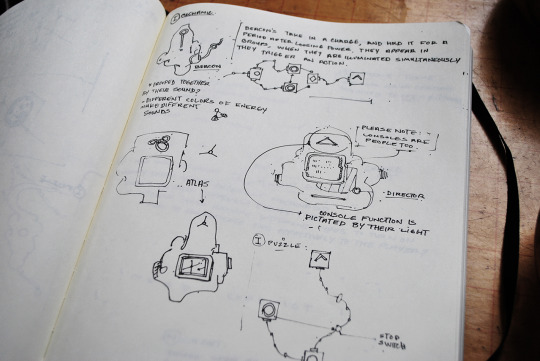 ① MECHANIC
BEACON'S TAKE IN A CHARGE, AND HOLD IT FOR A
PERIOD AFTER LOOSING POWER, THEY APPEAR IN
GROUPS, WHEN THEY ARE ILLUMINATED SIMULTANEOUSLY
THEY TRIGGER AN ACTION.
BEACON
• GROUPED TOGETHER
BY THEIR SOUND?
• DIFFERENT COLORS OF ENERGY
MAKE DIFFRENT
SOUNDS
PLEASE NOTE:
CONSOLES ARE
PEOPLE TOO.
ATLAS
DIRECTOR
CONSOLE FUNCTION IS
DICTATED BY THEIR LIGHT
① PUZZLE:
STOP
SWITCH